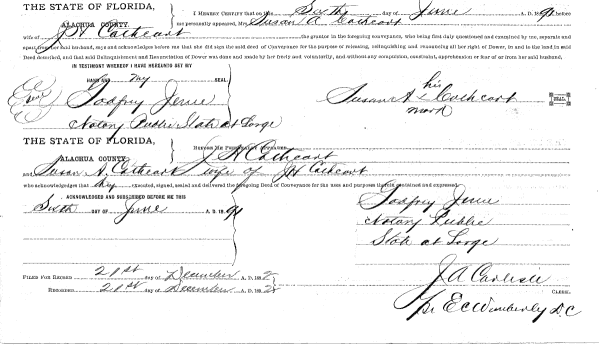 THE STATE OF FLORIDA,
ALACHUA COUNTY.
I HEREBY CERTIFY that on this Sixth day of June A. D. 1891 before
me personally appeared, Mrs. Susan A Cathcart
wife of J H Cathcart the grantor in the foregoing conveyance, who being first duly questioned and examined by me, separate and
apart from her said husband, says and acknowledges before me that she did sign the said deed of Conveyance for the purpose of releasing, relinquishing and renouncing all her right of Dower, in and to the land in said
Deed described, and that said Relinquishment and Renunciation of Dower was done and made by her freely and voluntarily, and without any compulsion, constraint, apprehension or fear of or from her said husband.
IN TESTIMONY WHEREOF I HAVE HEREUNTO SET MY
HAND AND my SEAL
Godfrey
Notary Public State at Large
Susan A his Cathcart
mark
SEAL
THE STATE OF FLORIDA,
ALACHUA COUNTY.
BEFORE ME PERSONALLY APPEARED J H Cathcart
and Susan A. Cathcart wife of J H Cathcart
who acknowledges that they executed, signed, sealed and delivered the foregoing Deed of Conveyance for the uses and purposes therein contained and expressed.
ACKNOWLEDGED AND SUBSCRIBED BEFORE ME THIS
Sixth DAY OF June A. D. 1891
Godfrey
Notary Public
State at Large
FILED FOR RECORD 21st day of December A. D. 189
RECORDED 21st day of December A. D. 189
J A Carlisle
CLERK.
Pr E C Wimberly D.C